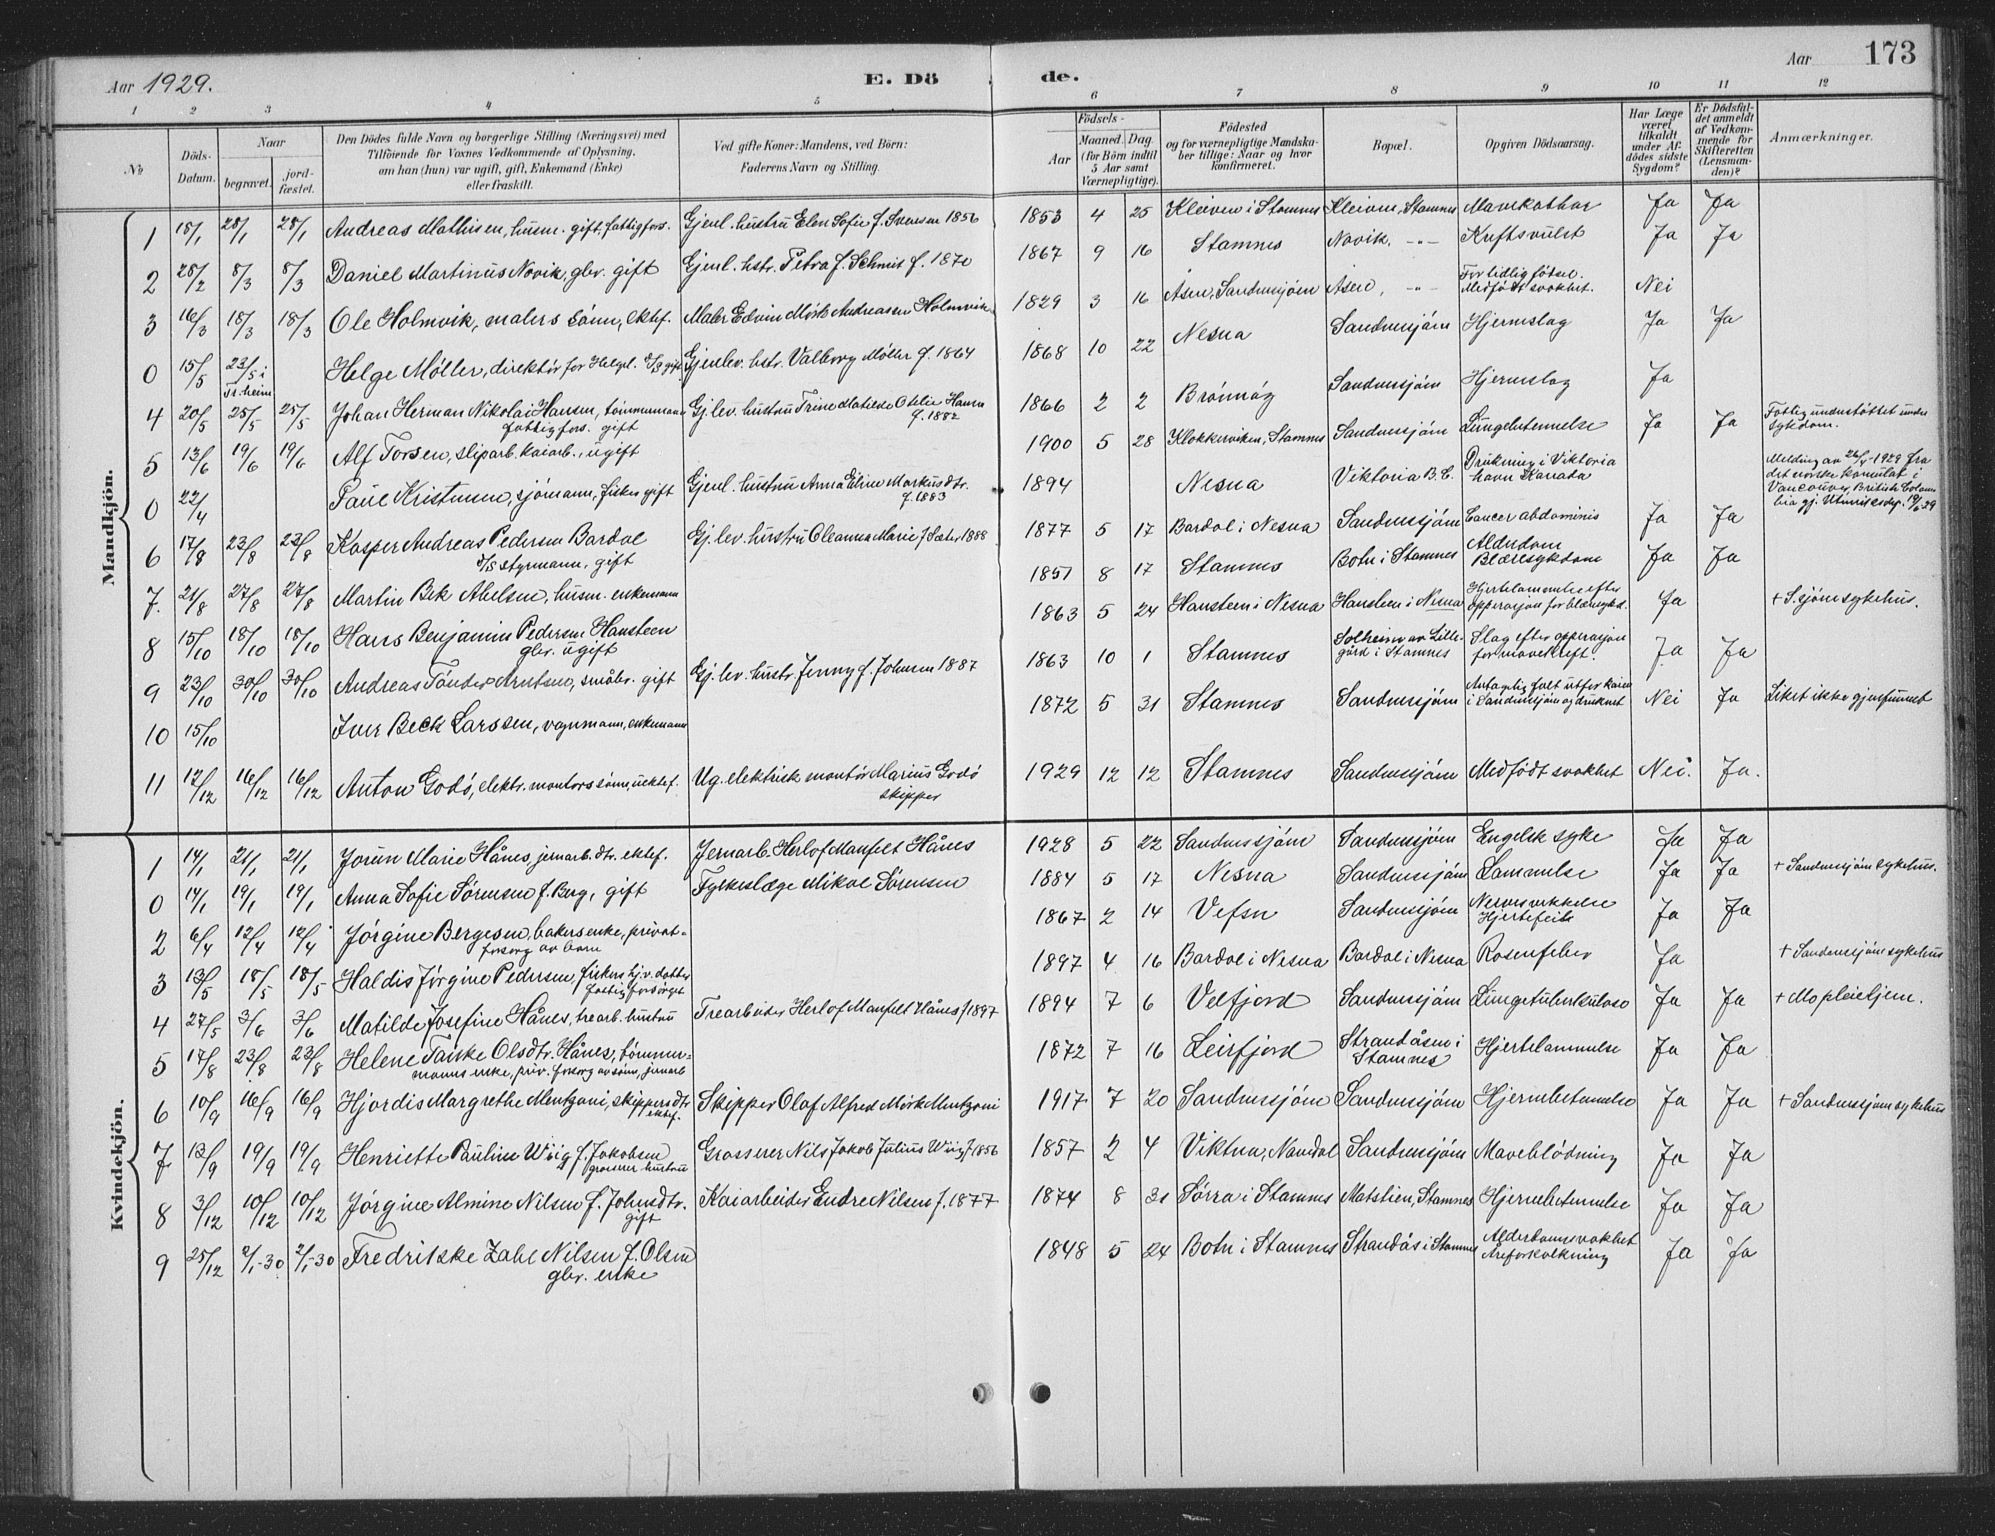 Aar 1929. E. Dö de. Aar 173
1 2 3 4 5 6 7 8 9 10 11 12
No Döds-Datum. Naar begravet. jord-fæstet. Den Dödes fulde Navn og borgerlige Stilling (Næringsvei) med Tilföiende for Voxnes Vedkommende af Oplysning, om han (hun) var ugift, gift, Enkemand (Enke) eller fraskilt. Ved gifte Koner: Mandens, ved Börn: Faderens Navn og Stilling. Födsels- Aar Maaned. Dag. (for Börn indtil 5 Aar samt Værnepligtige). Födested og for værnepligtige Mandska-ber tillige: Naar og hvor konfirmeret. Bopæl. Opgiven Dödsaarsag. Har Læge været tilkaldt under Af-dödes sidste Sygdom? Er Dödsfal-det anmeldt af Vedkom-mende for Skifteretten (Lensman-den)? Anmærkninger.
Mandkjön.
1 18/1 28/1 28/1 Andreas Mathisen, husm. gift, fattigfors. Gjenl. hustru Elen Sofie f. Svensen 1856 1853 4 25 Kleiven i Stamnes Kleiven, Stamnes Mavekathar Ja Ja
2 28/2 8/3 8/3 Daniel Martinus Novik, gbr. gift Gjenl. hstr. Petra f. Schmit f. 1870 1867 9 16 Stamnes Novik, -"- Kræftsvulst Ja Ja
3 16/3 18/3 18/3 Ole Holmvik, malers sönn, ektef. Maler Edvin Mörk Andreassen Holmvik 1829 3 16 Åsen, Sandnessjöen Åsen, -"- For tidlig fötsel. Medfödt svakhet. Nei
0 15/5 23/5 i Tr.heim Helge Möller, direktör for Helgel. D/S gift Gjenlev. hstr. Valborg Möller f. 1864 1868 10 22 Nesna Sandnessjöen Hjerneslag Ja Ja
4 20/5 25/5 25/5 Johan Herman Nikolai Hansen, tömmermann fattigfors. gift Gj.lev. hustru Trine Matilde Otelie Hansen f. 1882 1866 2 2 Brönnöy Sandnessjöen Hjerneslag Ja
5 13/6 19/6 19/6 Alf Torsen, sliparb. kaiarb., ugift 1900 5 28 Klokkervikeu, Stamnes Sandnessjöen Lungebetennelse Ja Ja Fattig understöttet under sykdom.
0 22/4 Paul Kristensen, sjömann, fisker gift Gjenl. hustru Anna Eline Markusdtr. f. 1883 1894 Nesna Viktoria B.C. Drukning i Viktoria havn Kanada Melding av 26/4-1929 fra det norske konsulat i Vancouver, British Colum bia gj. Utenriksdep. 19/6 29
6 17/8 23/8 23/8 Kasper Andreas Pedersen Bardal D/S styrmann, gift Gj.lev. hustru Oleanna Marie f. Sæter 1888 1877 5 17 Bardal i Nesna Sandnessjöen Cancer abdominis Ja Ja
7. 21/8 27/8 27/8 Martin Bek Abelsen, husm. enkemann 1851 8 17 Stamnes Botn i Stamnes Alderdom Blæresykdom Ja Ja
8 15/10 18/10 18/10 Hans Benjamin Pedersen Hansteen gbr. ugift 1863 5 24 Hansteen i Nesna Hansteen i Nesna Hjertelammelse efter opperasjon for blæresykd. Ja + S.sjöen sykehus.
9 23/10 30/10 30/10 Andreas Tönder Arntsen, småbr. gift Gj.lev. hustr. Jenny f. Johnsen 1887 1863 10 1 Stamnes Solheim av Lille-gård i Stamnes Slag efter opperasjon for mavekreft. Ja Ja
10 15/10 Iver Beck Larssen, vognmann, enkemann 1872 5 31 Stamnes Sandnessjöen Antagelig falt utfor kaien i Sandnessjöen og druknet Nei Ja Liket ikke gjenfunnet
11 12/12 16/12 16/12 Anton Godö, elektr. montörs sönn, uektef. Ug. elektrisk montör Marius Godö skipper 1929 12 12 Stamnes Sandnessjöen Medfödt svakhet Nei. Ja.
Kvindekjön.
1 14/1 21/1 21/1 Jorun Marie Hånes, jernarb. dtr. ektef. Jernarb. Herlof Manfelt Hånes 1928 5 22 Sandnessjöen Sandnessjöen Engelsk syke Ja Ja
0 14/1 19/1 19/1 Anna Sofie Sörensen f. Berg, gift Fylkeslæge Mikal Sörensen 1884 5 17 Nesna Sandnessjöen Lammelse Ja Ja + Sandnessjöen sykehus.
2 6/4 12/4 12/4 Jörgine Bergesen, bakers enke, privat-forsorg av barn 1867 2 14 Vefsn Sandnessjöen Nervesvekkelse Hjertefeil Ja Ja
3 13/5 18/5 18/5 Haldis Jörgine Pedersen, fiskers hj.v. datter fattigforsörget 1897 4 16 Bardal i Nesna Bardal i Nesna Rosenfeber Ja + Sandnessjöen sykehus
4 27/5 3/6 3/6 Matilde Josefine Hånes, trearb. hustru Trearbeider Herlof Manfelt Hånes f 1897 1894 7 6 Velfjord Sandnessjöen Lungetuberkulose Ja Ja + Mo pleiehjem.
5 17/8 23/8 23/8 Helene Taiske Olsdtr. Hånes, tömmer-manns enke, priv. forsorg av sönn, jernarb 1872 7 16 Leirfjord Strandåsen i Stamnes Hjertelammelse Ja Ja
6 10/9 16/9 16/9 Hjordis Margrethe Mentzoni, skippersdtr ektef. Skipper Olaf Alfred Mörk Mentzoni 1917 7 20 Sandnessjöen Sandnessjöen Hjernebetennelse Ja Ja + Sandnessjöen sykehus
7 13/9 19/9 19/9 Henriette Pauline Wiig f. Jakobsen grosserer hustru Grosserer Nils Jakob Julius Wiig f 1856 1857 2 4 Viktna, Namdal Sandnessjöen Maveblödning Ja Ja
8 3/12 10/12 10/12 Jörgine Almine Nilsen f. Johnsdtr. gift Kaiarbeider Endre Nilsen f. 1877 1874 8 31 Sörra i Stamnes Matstien, Stamnes Hjernebetennelse Ja Ja
9 25/12 2/1-30 2/1-30 Fredrikke Zahl Nilsen f. Olsen gbr. enke 1848 5 24 Botn i Stamnes Strandås i Stamnes Alderdomssvakhet Åreforkalkning Ja Ja